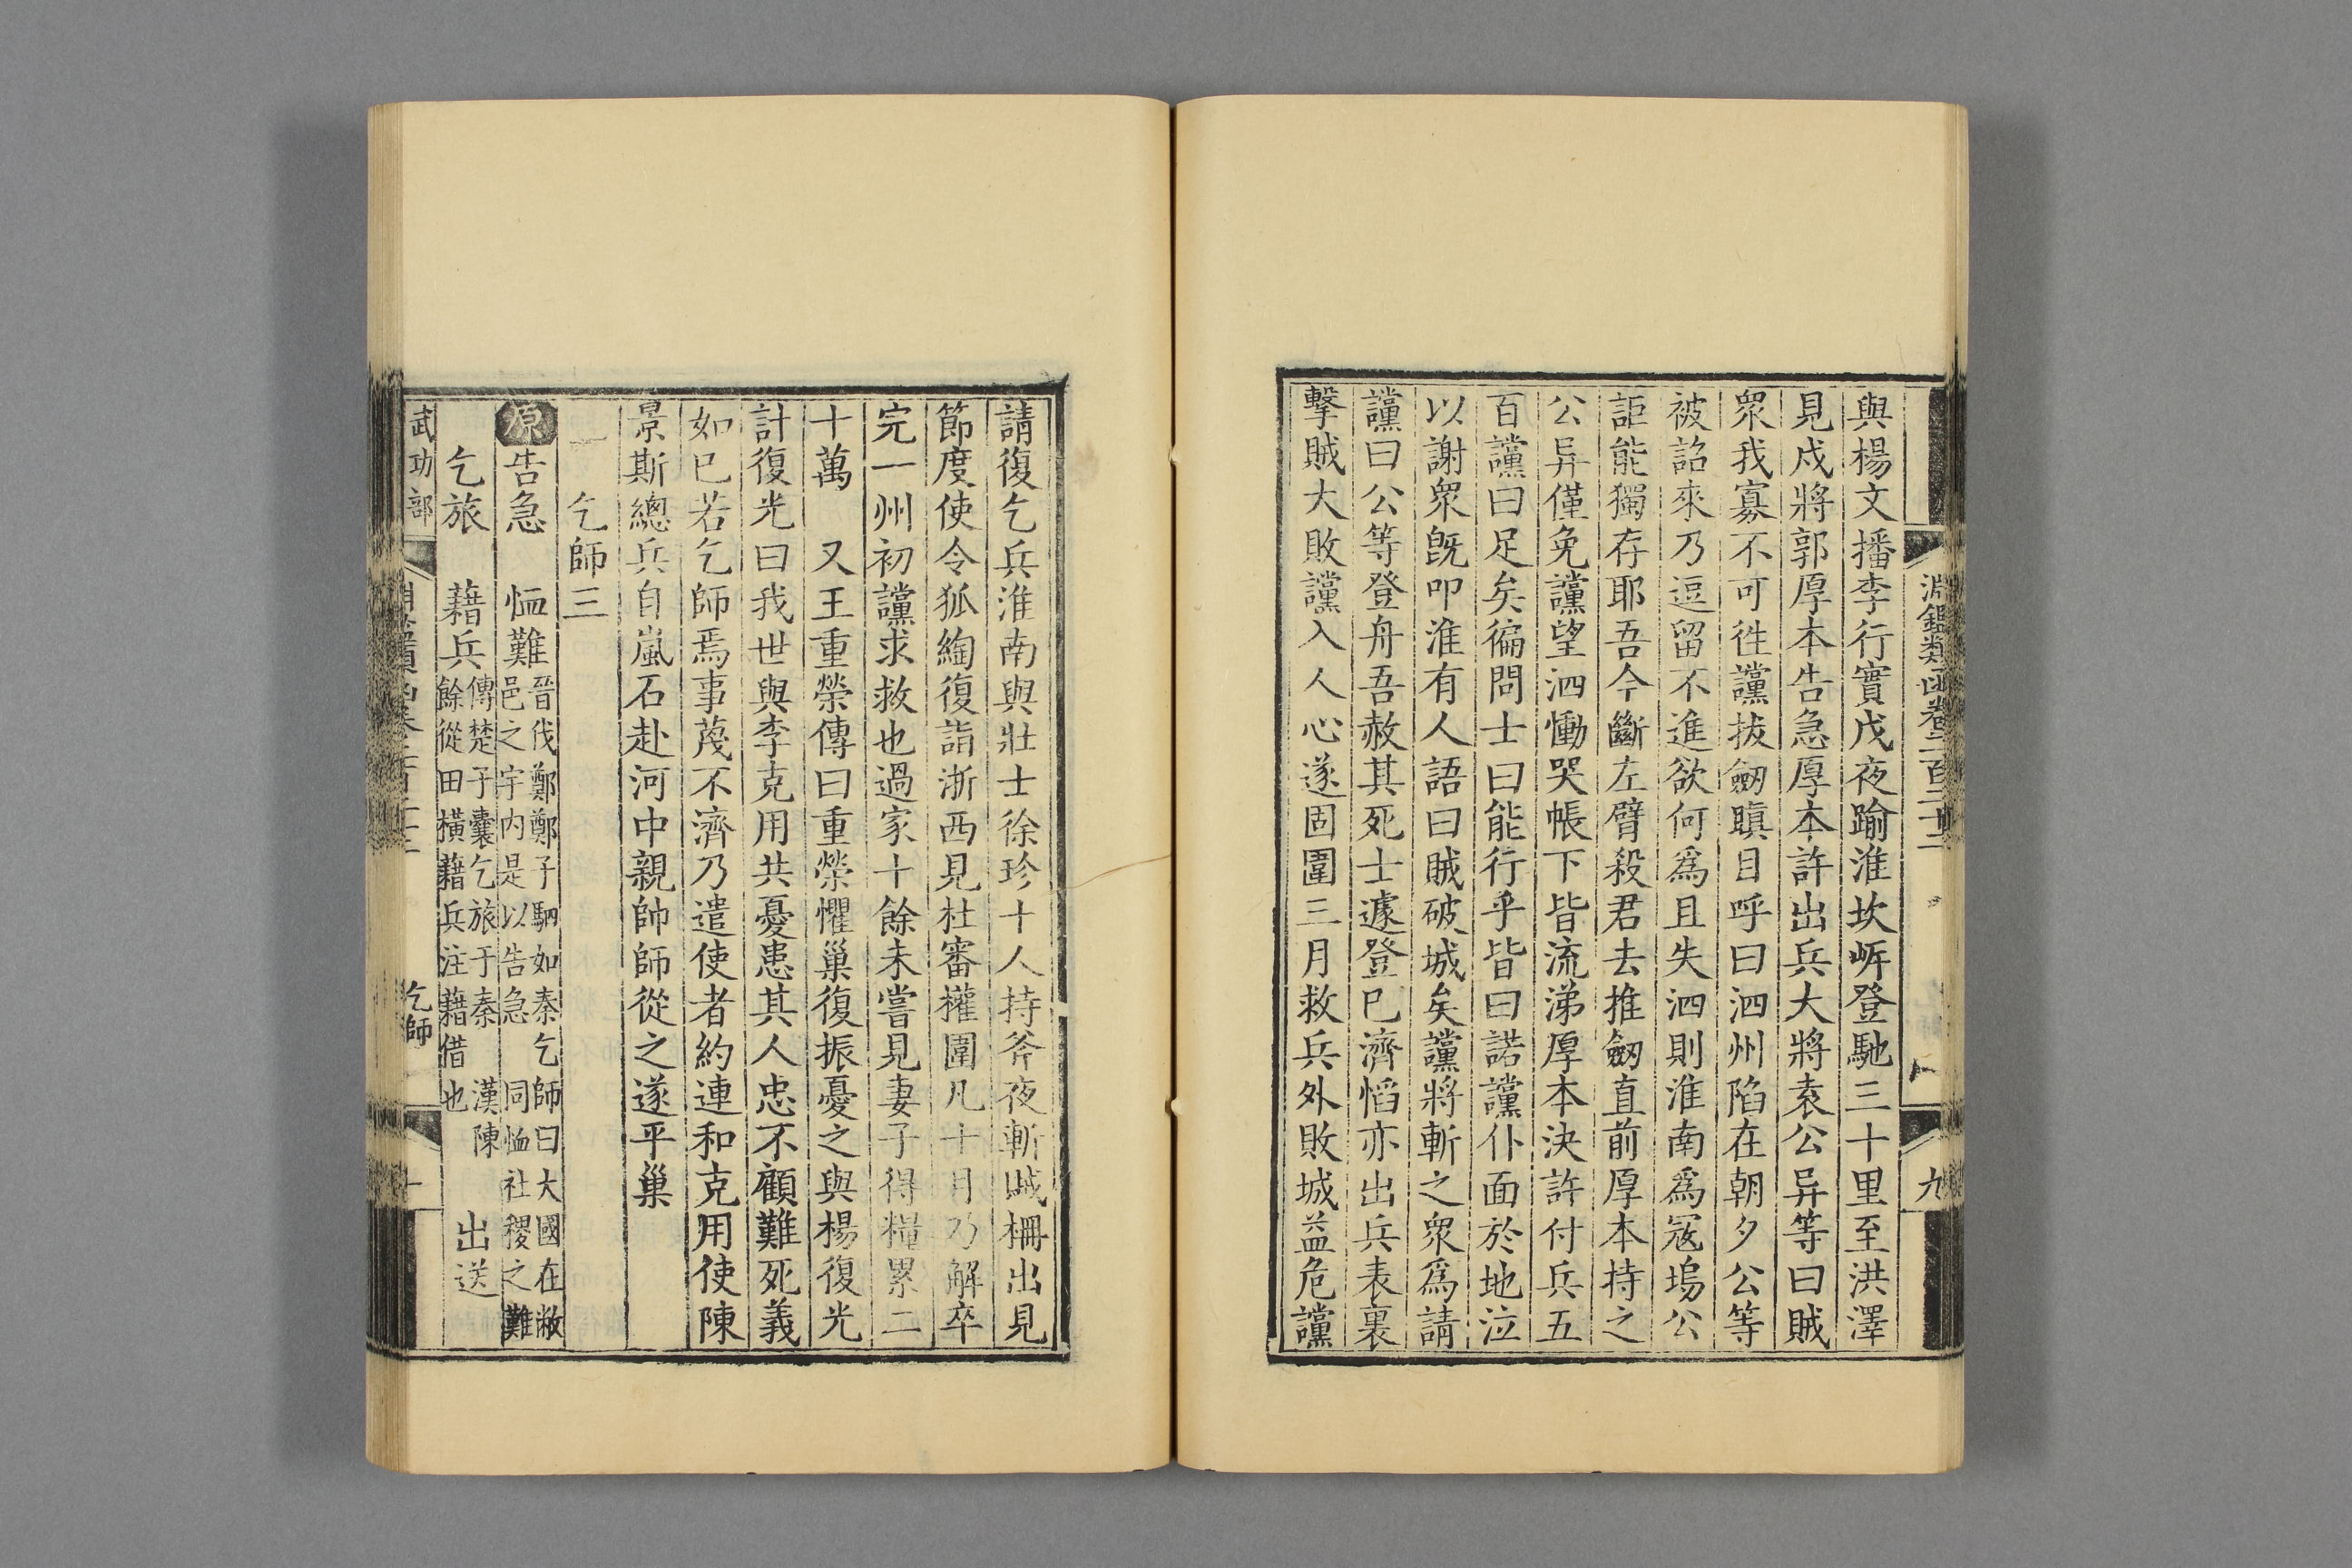 淵鑑類函卷二百二十二
九
與楊文播李行實戍夜踰淮坎岍登馳三十里至洪澤
見戍將郭厚本告急厚本許出兵大將袁公异等曰賊
衆我寡不可徃讜拔劒瞋目呼曰泗州陷在朝夕公等
被詔來乃逗留不進欲何爲且失泗則淮南爲冦塲公
詎能獨存耶吾今斷左臂殺君去推劒直前厚本持之
公异僅免讜望泗慟哭帳下皆流涕厚本決許付兵五
百讜曰足矣徧問士曰能行乎皆曰諾讜仆面於地泣
以謝衆旣叩淮有人語曰賊破城矣讜將斬之衆爲請
讜曰公等登舟吾赦其死士遽登已濟慆亦出兵表裏
擊賊大敗讜入人心遂固圍三月救兵外敗城益危讜
請復乞兵淮南與壯士徐珍十人持斧夜斬賊柵出見
節度使令狐綯復詣浙西見杜審權圍凡十月乃解卒
完一州初讜求救也過家十餘未嘗見妻子得糧累二
十萬　又王重榮傳曰重榮懼巢復振憂之與楊復光
計復光曰我世與李克用共憂患其人忠不顧難死義
如已若乞師焉事蔑不濟乃遣使者約連和克用使陳
景斯總兵自嵐石赴河中親帥師從之遂平巢
乞師三
原告急　恤難晉伐鄭鄭子駟如秦乞師曰大國在敝邑之宇内是以告急　同恤社稷之難
乞旅　藉兵傳楚子囊乞旅于秦　漢陳餘從田橫藉兵注藉借也　出送
武功部
乞師